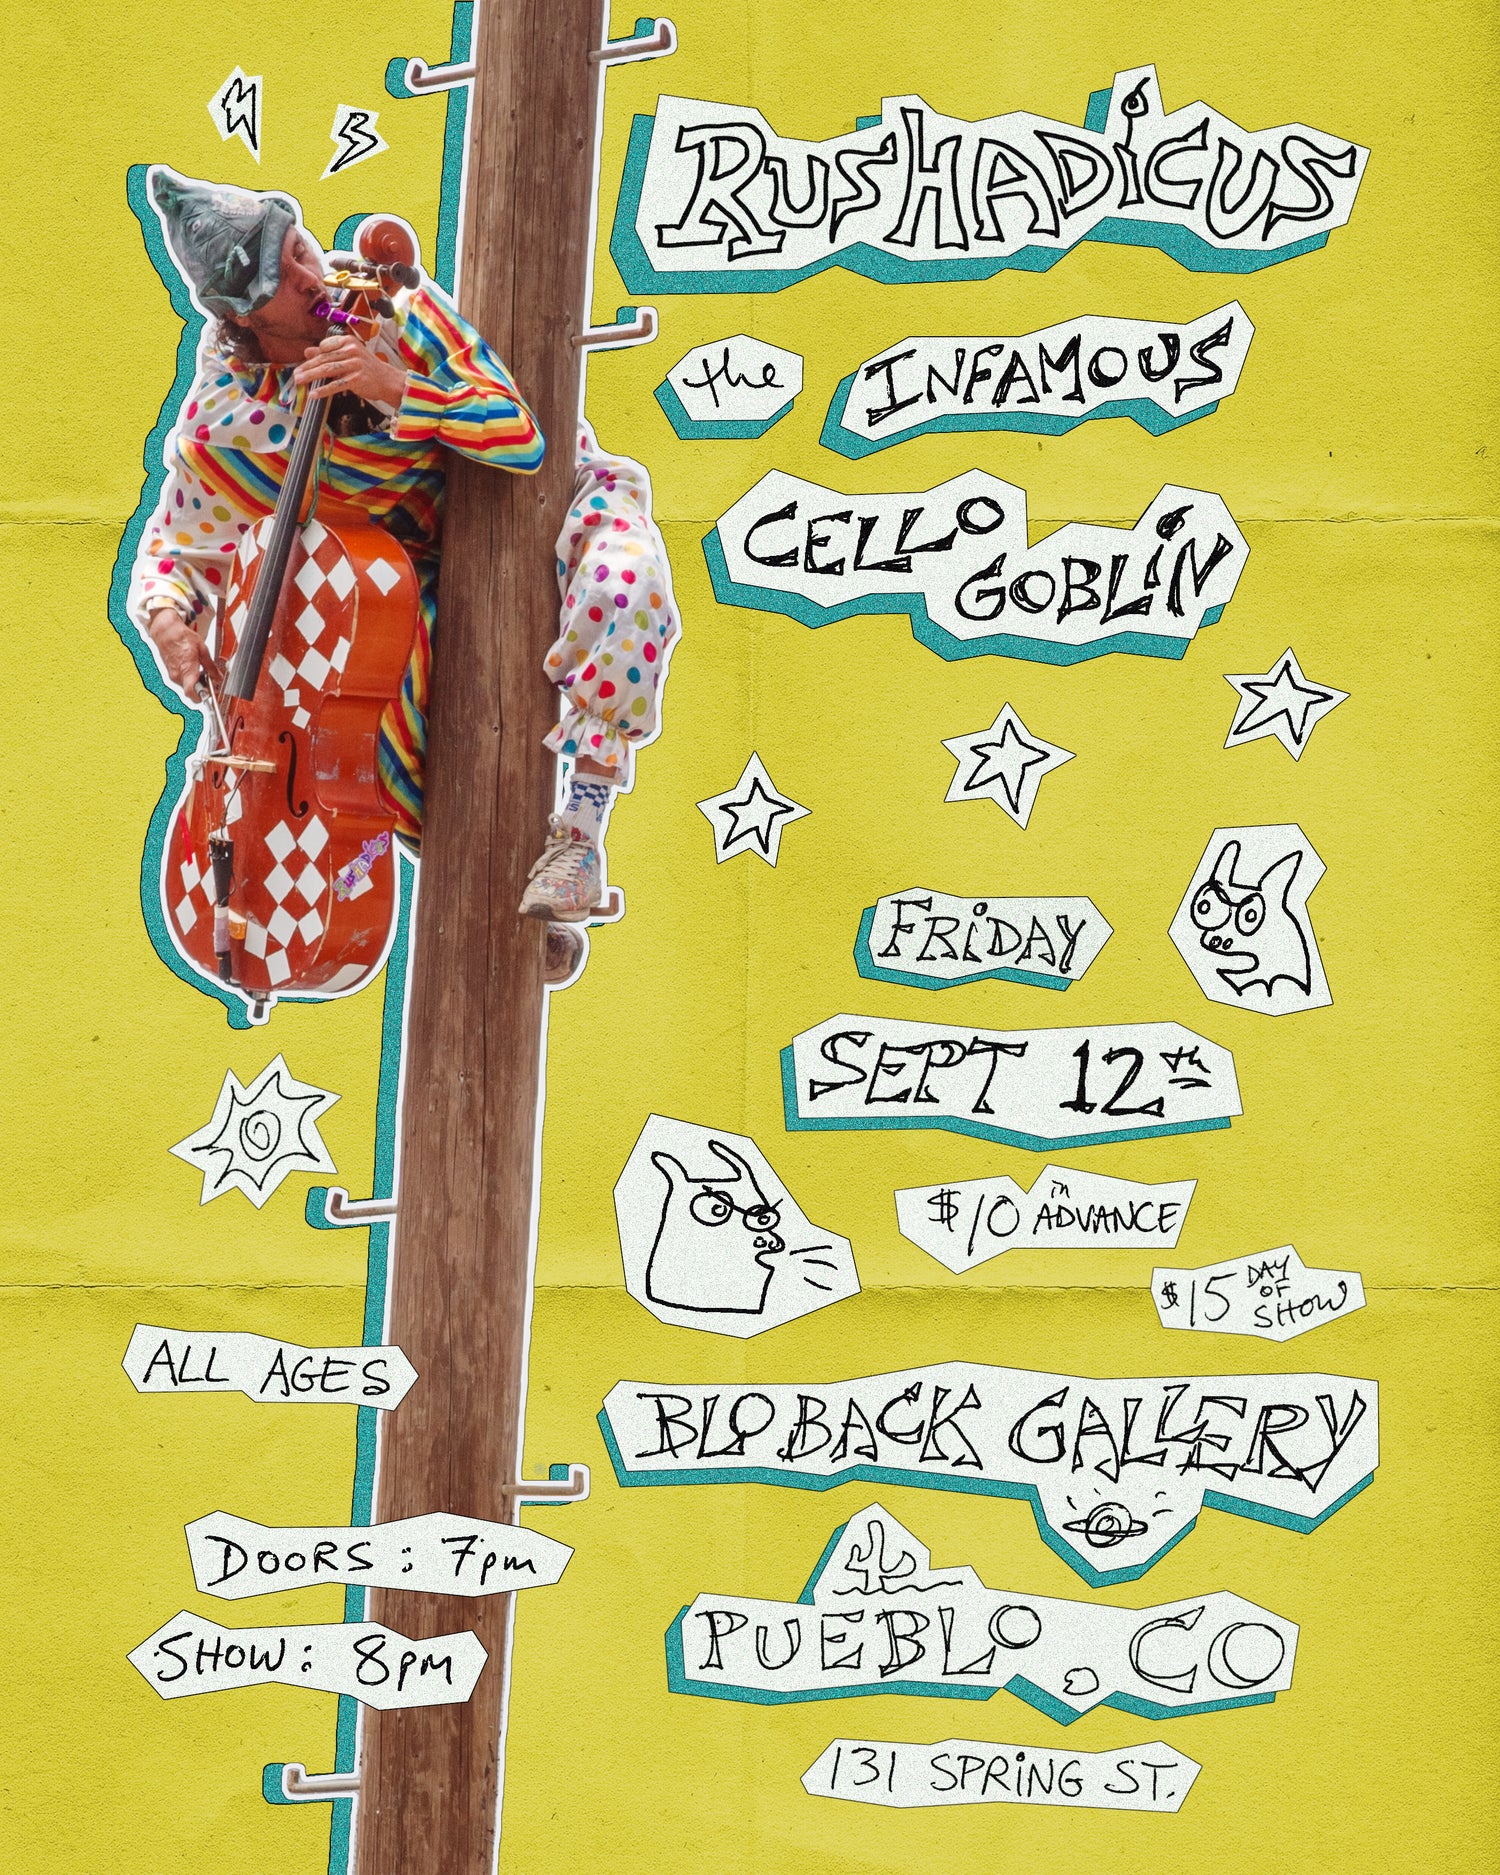 RUSHADiCUS
the INFAMOUS
CELLO
GOBLiN
FRiDAY
SEPT 12th
$10 in ADVANCE
$15 DAY OF SHOW
ALL AGES
BLO BACK GALLERY
DOORS: 7pm
SHOW: 8pm
PUEBLO, CO
131 SPRiNG ST.